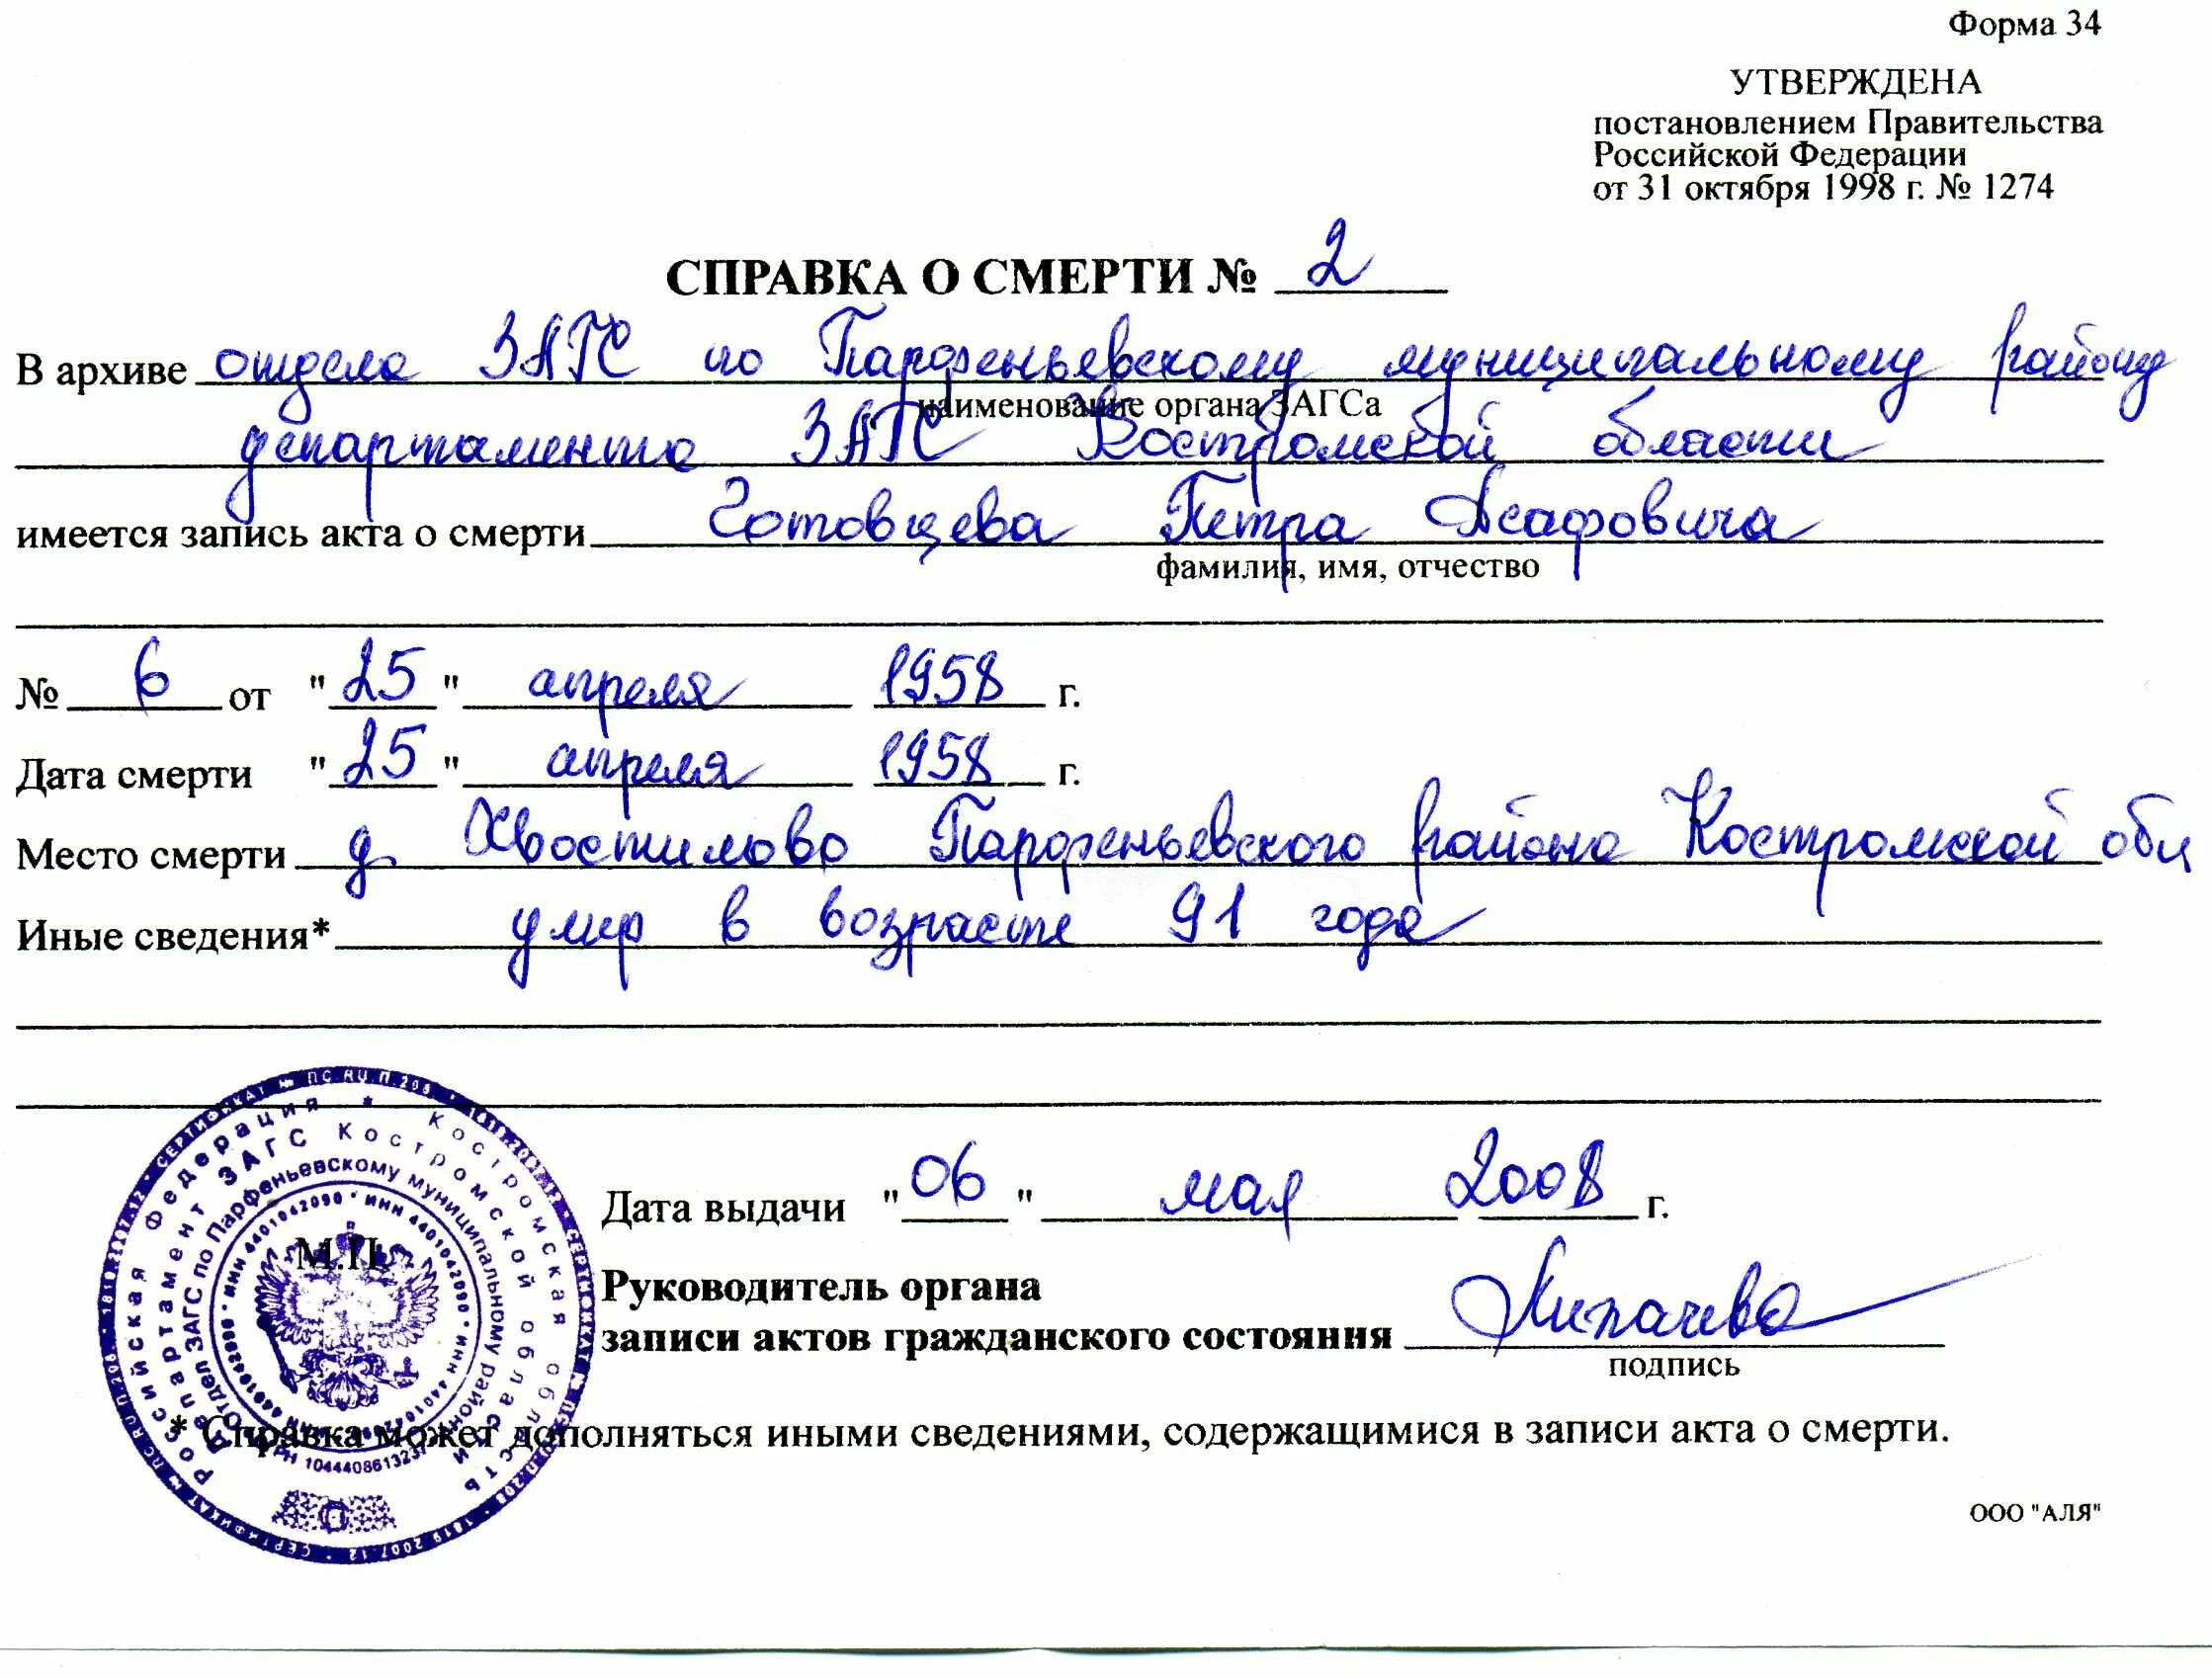 Форма 34
УТВЕРЖДЕНА
постановлением Правительства
Российской Федерации
от 31 октября 1998 г. № 1274
СПРАВКА О СМЕРТИ № 2
В архиве отдела ЗАГС по Парфеньевскому муниципальному району
наименование органа ЗАГСа
департамента ЗАГС Костромской области
имеется запись акта о смерти Готовцева Петра Асафовича
фамилия, имя, отчество
№ 6 от "25" апреля 1958 г.
Дата смерти "25" апреля 1958 г.
Место смерти д. Хвостилово Парфеньевского района Костромской обл
Иные сведения* умер в возрасте 91 года
Российская Федерация * Костромская область
Департамент ЗАГС Костромской области
Отдел ЗАГС по Парфеньевскому муниципальному району
ИНН 4401042090 * ИНН 4401042090 * ИНН 4401042090
М.П.
Дата выдачи "06" мая 2008 г.
Руководитель органа
записи актов гражданского состояния
подпись
* Справка может дополняться иными сведениями, содержащимися в записи акта о смерти.
ООО "АЛЯ"